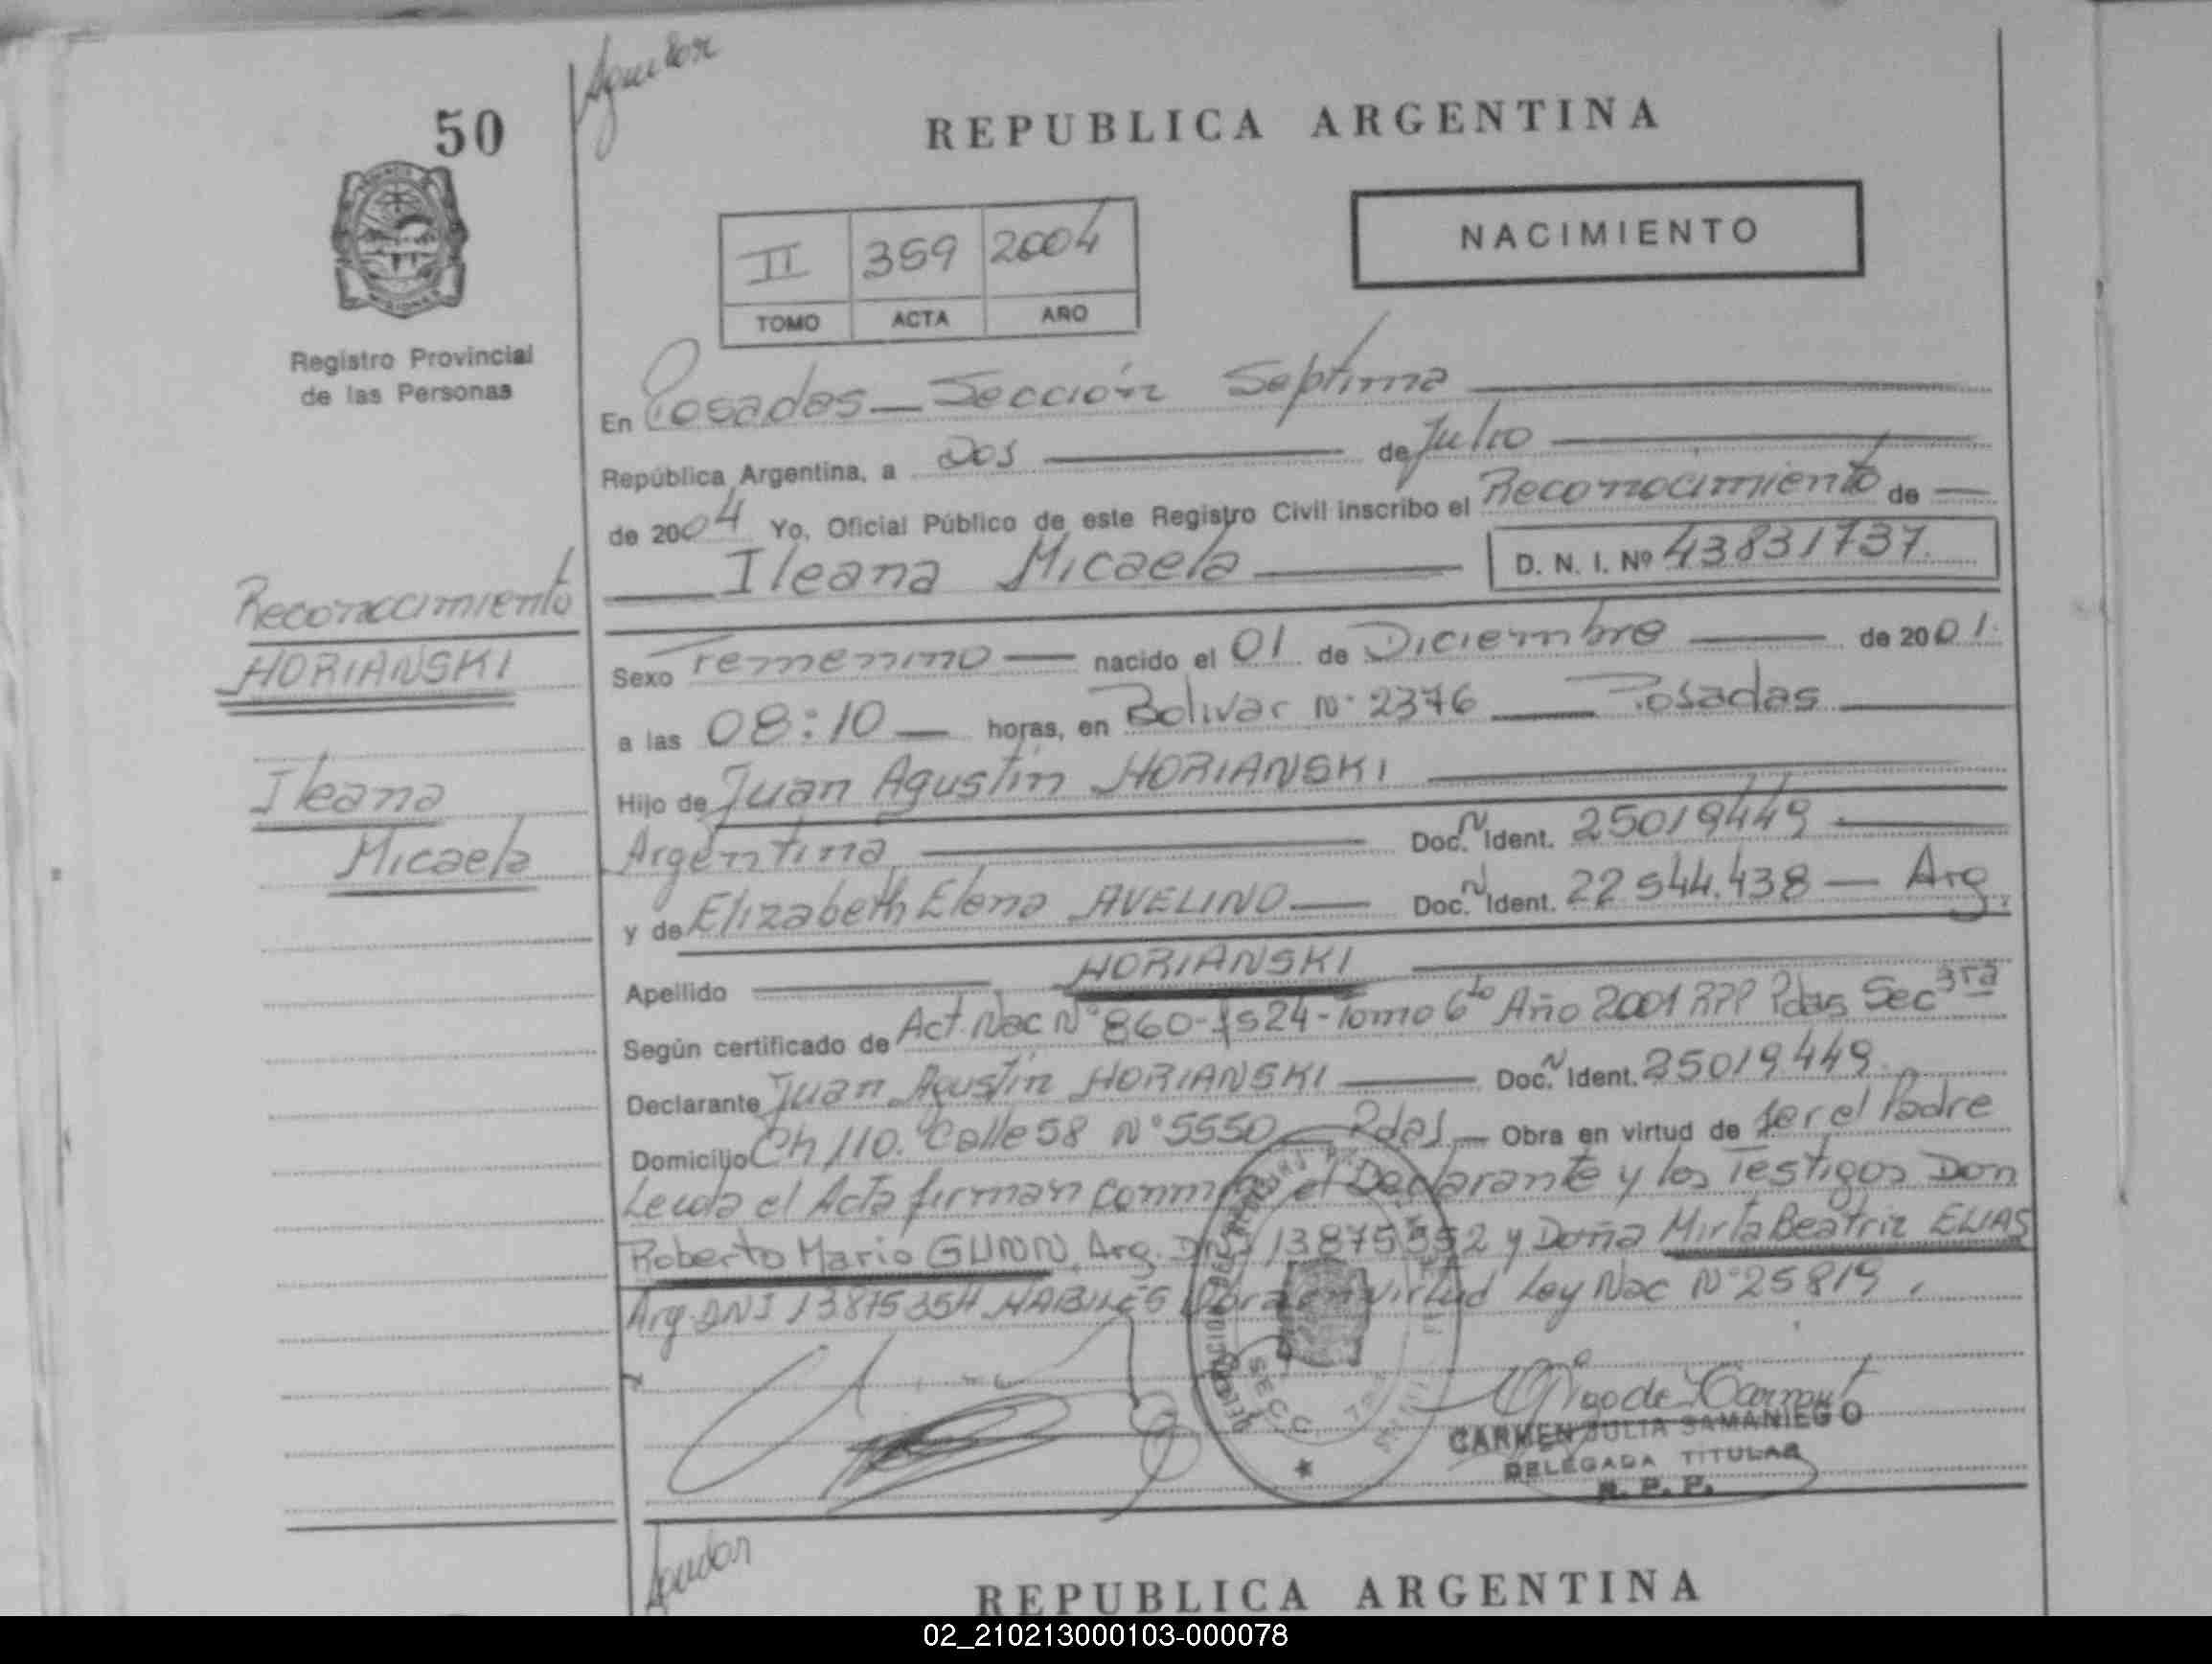 50
REPUBLICA ARGENTINA
NACIMIENTO
II 359 2004
TOMO ACTA AÑO
Registro Provincial
de las Personas
En Posadas — Sección Septima
República Argentina, a Dos de Julio
de 2004 Yo, Oficial Público de este Registro Civil inscribo el Reconocimiento de
Ileana Micaela D. N. I. Nº 43831737.
Reconocimiento
HORIANSKI
Ileana
Micaela
Sexo Femenino nacido el 01 de Diciembre de 2001.
a las 08:10 horas, en Bolivar Nº 2376 Posadas
Hijo de Juan Agustín HORIANSKI
Argentina Doc. N Ident. 25019449
y de Elizabeth Elena AVELINO Doc. N Ident. 22544.438 — Arg.
Apellido HORIANSKI
Según certificado de Act. Nac Nº 860- Fs 24 - Tomo 6to Año 2001 RPP Pdas Sec 3ra
Declarante Juan Agustín HORIANSKI Doc. N Ident. 25019449.
Domicilio Ch 110. Calle 58 Nº 5550 Pdas — Obra en virtud de ser el Padre
Leida el Acta firman el Declarante y los Testigos Don
Roberto Mario GUNN, Arg. DNI y Doña Mirta Beatriz ELIAS
Arg. DNI HABILES Obra en virtud Ley Nac Nº 25819.
SECC 7
CARMEN JULIA SAMANIEGO
DELEGADA TITULAR
R. P. P.
REPUBLICA ARGENTINA
02_210213000103-000078